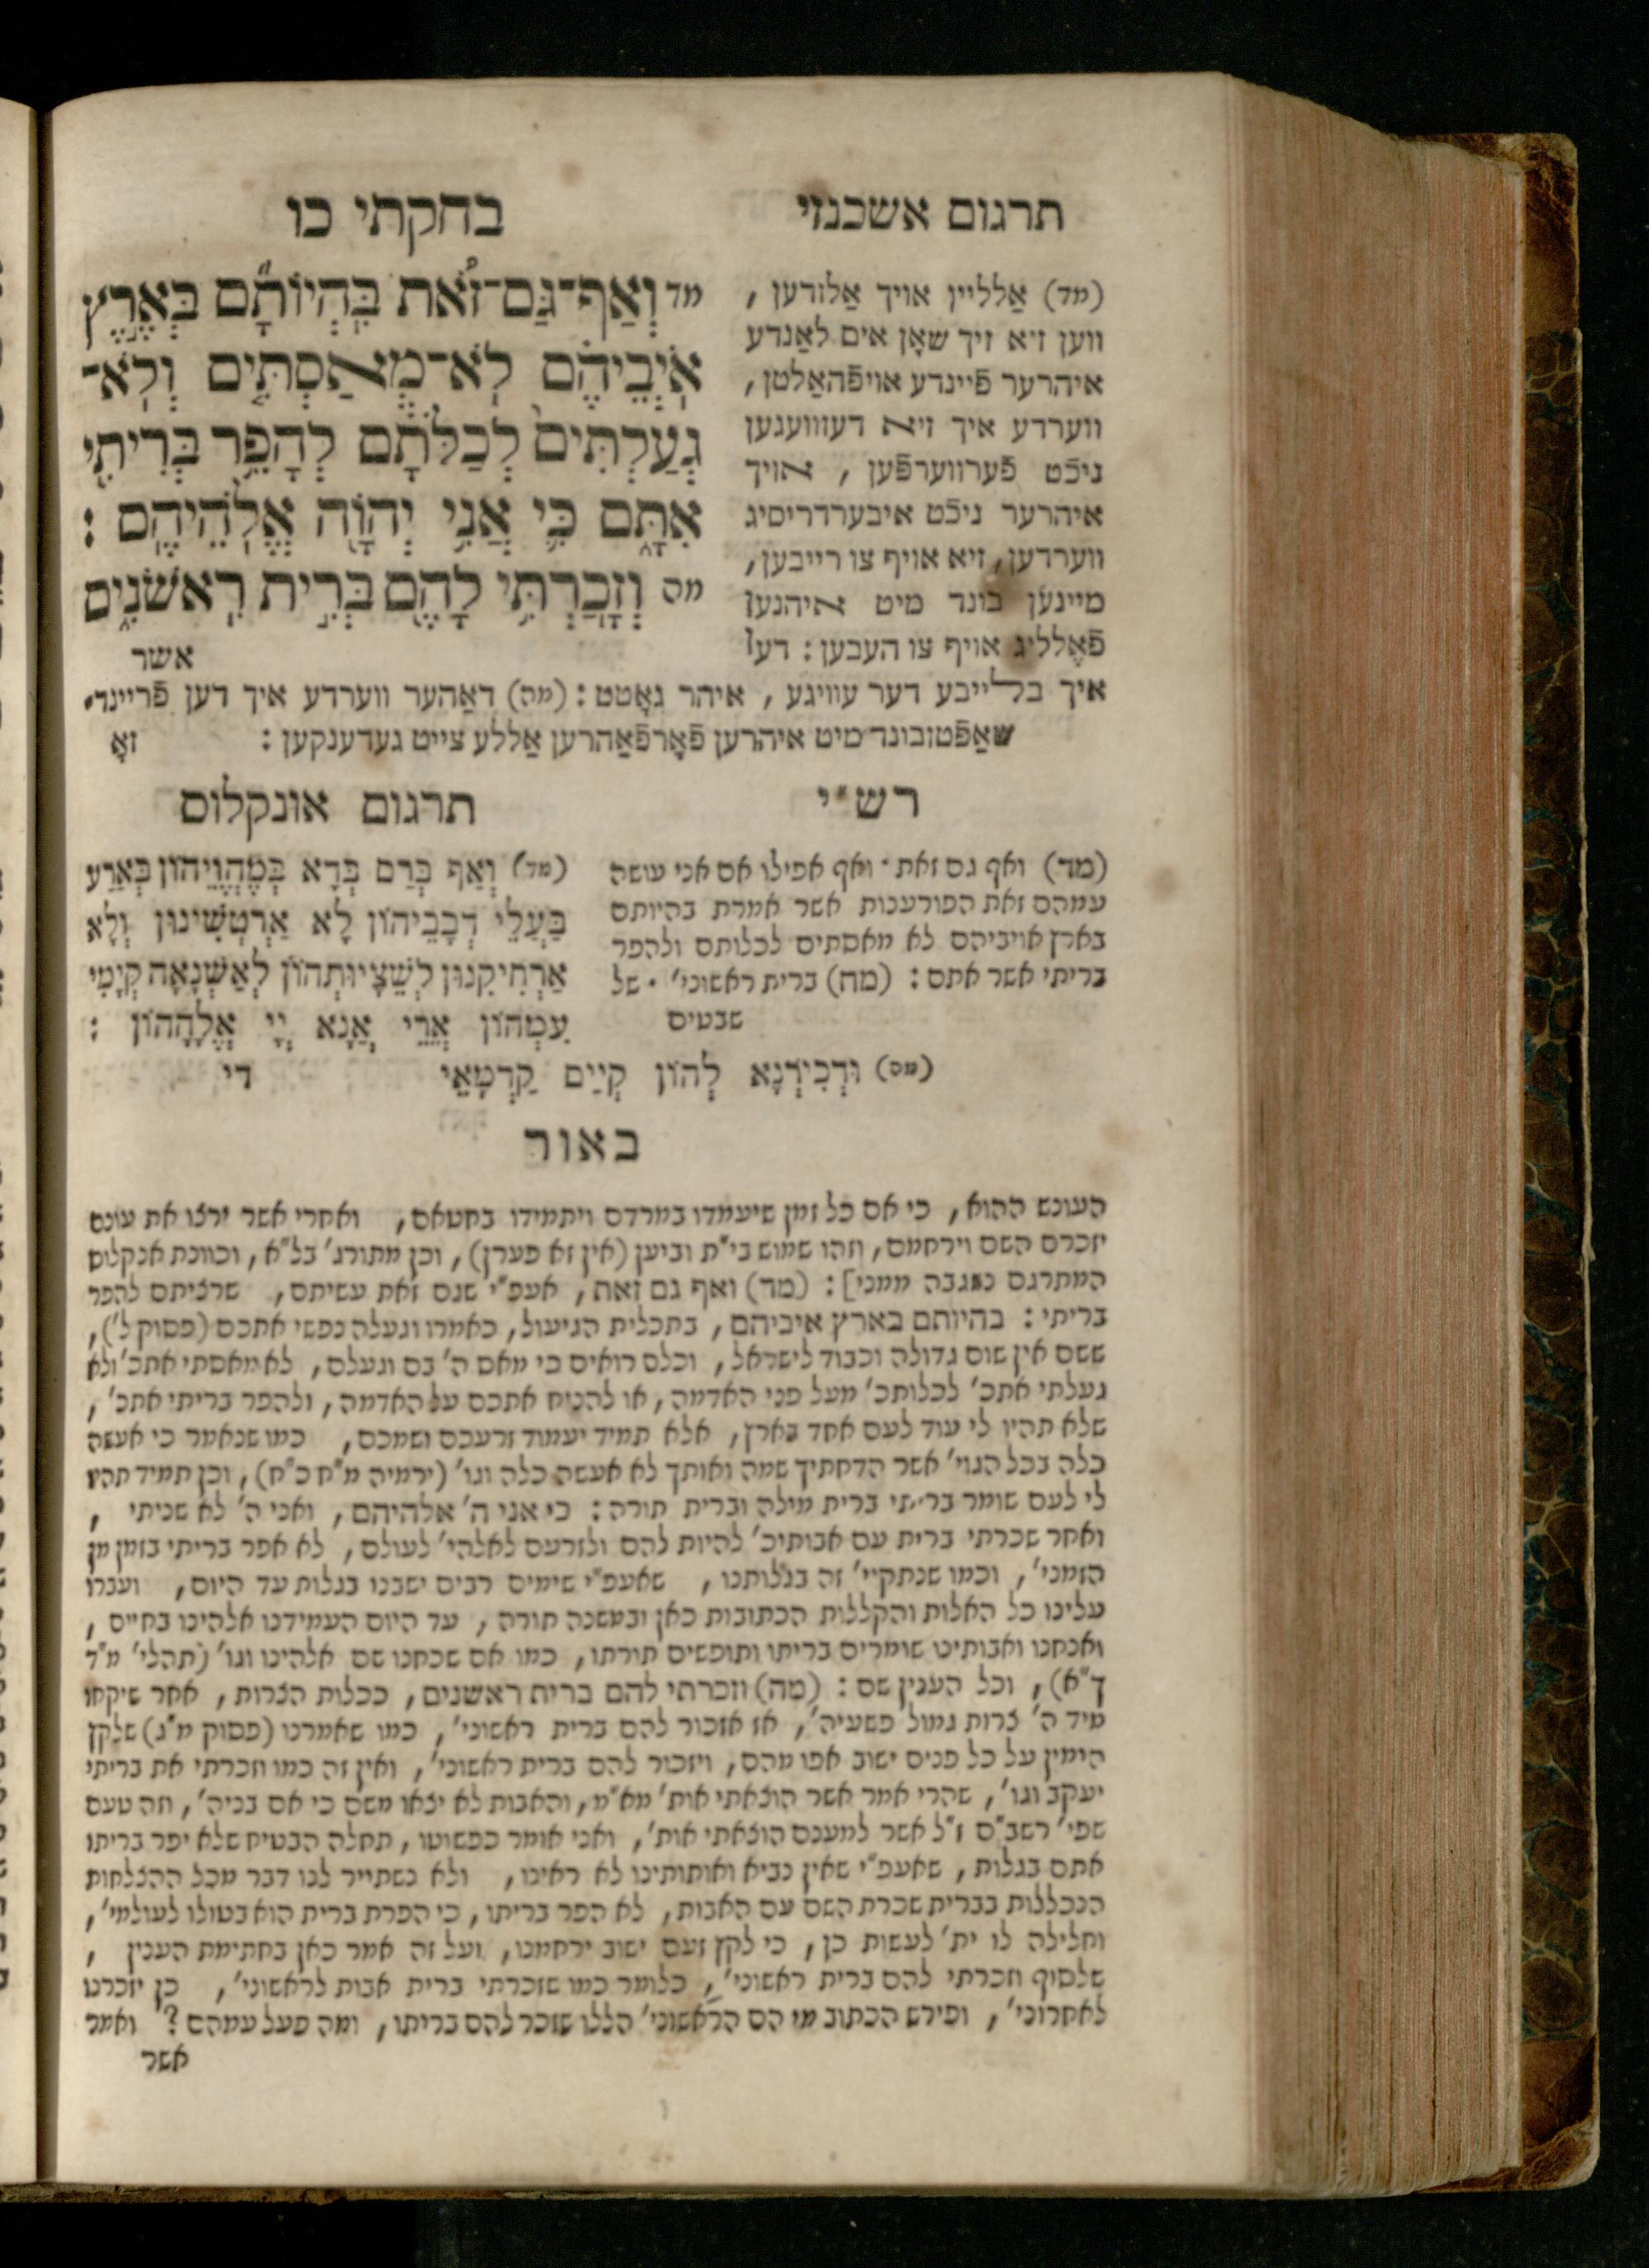 תרגום אשכנזי
בחקתי כו
מד וְאַף־גַּם־זֹאת בִּהְיוֹתָם בְּאֶרֶץ
אֹיְבֵיהֶם לֹא־מְאַסְתִּים וְלֹא־
גְעַלְתִּים לְכַלֹּתָם לְהָפֵר בְּרִיתִי
אִתָּם כִּי אֲנִי יְהוָֹה אֱלֹהֵיהֶם :
מה וְזָכַרְתִּי לָהֶם בְּרִית רִאשֹׁנִים
אשר
(מד) אַלליין אויך אַלזדען ,
ווען זיא זיך שאָן אים לאַנדע
איהרער פֿיינדע אויפֿהאַלטן,
ווערדע איך זיא דעזוועגען
ניכֿט פֿערווערפֿען , אויך
איהרער ניכֿט איבערדריסיג
ווערדען, זיא אויף צו רייבען,
מיינען בונד מיט איהנען
פֿאֶלליג אויף צו העבען : דען
איך בלייבע דער עוויגע , איהר גאָטט : (מה) דאַהער ווערדע איך דען פֿריינד־
שאַפֿטזבונד מיט איהרען פֿאָרפֿאַהרען אַללע צייט געדענקען :
זאָ
רש״י
(מד) ואף גם זאת · ואף אפילו אם אני עושה
עמהם זאת הפורענות אשר אמרת בהיותם
בארץ אויביהם לא מאסתים לכלותם ולהפר
בריתי אשר אתם : (מה) ברית ראשוני׳ · של
שבטים
תרגום אונקלוס
(מד) וְאַף בְּרַם בְּדָא בְּמֶהֱוֵיהוֹן בְּאַרַע
בַּעֲלֵי דְבָבֵיהוֹן לָא אַרְטְשִׁינוּן וְלָא
אַרְחִיקִנוּן לְשֵׁצָיוּתְהוֹן לְאַשְׁנָאָה קְיָמִי
עִמְּהוֹן אֲרֵי אֲנָא יְיָ אֱלָהָהוֹן :
(מה) וּדְכִירְנָא לְהוֹן קְיַם קַדְמָאֵי
די
באור
העונש ההוא, כי אם כל זמן שיעמדו במרדם ויתמידו בחטאם, ואחרי אשר ירצו את עונם
יזכרם השם וירחמם, וזהו שמוש בי״ת וביען (אין זא פערן), וכן מתורג׳ בל״א, וכוונת אנקלוס
המתרגם נשגבה ממני] : (מד) ואף גם זאת, אעפ״י שגם זאת עשיתם, שרציתם להפר
בריתי : בהיותם בארץ איביהם, בתכלית הגיעול, כאמרו וגעלה נפשי אתכם (פסוק ל׳),
ששם אין שום גדולה וכבוד לישראל, וכלם רואים כי מאם ה׳ בם וגעלם, לא מאסתי אתכ׳ ולא
געלתי אתכ׳ לכלותכ׳ מעל פני האדמה, או להניח אתכם על האדמה, ולהפר בריתי אתכ׳,
שלא תהיו לי עוד לעם אחד בארץ, אלא תמיד יעמוד זרעכם ושמכם, כמו שנאמר כי אעשה
כלה בכל הגוי׳ אשר הדחתיך שמה ואותך לא אעשה כלה וגו׳ (ירמיה מ״ח כ״ח), וכן תמיד תהיו
לי לעם שומר בריתי ברית מילה וברית תורה : כי אני ה׳ אלהיהם, ואני ה׳ לא שניתי ,
ואחר שכרתי ברית עם אבותיכ׳ להיות להם ולזרעם לאלהי׳ לעולם, לא אפר בריתי בזמן מן
הזמני׳, וכמו שנתקיי׳ זה בגלותנו , שאעפ״י שימים רבים ישבנו בגלות עד היום, ועברו
עלינו כל האלות והקללות הכתובות כאן ובמשנה תורה, עד היום העמידנו אלהינו בחיים ,
ואנחנו ואבותינו שומרים בריתו ותופשים תורתו, כמו אם שכחנו שם אלהינו וגו׳ (תהלי׳ מ״ד
ך״א), וכל הענין שם : (מה) וזכרתי להם ברית ראשנים, ככלות הצרות, אחר שיקחו
מיד ה׳ צרות גמול פשעיה׳, אז אזכור להם ברית ראשוני׳, כמו שאמרנו (פסוק מ״ג) שלקץ
הימין על כל פנים ישוב אפו מהם, ויזכור להם ברית ראשוני׳, ואין זה כמו וזכרתי את בריתי
יעקב וגו׳, שהרי אמר אשר הוצאתי אות׳ מא״מ, והאבות לא יצאו משם כי אם בניה׳, וזה טעם
שפי׳ רשב״ם ז״ל אשר למענם הוצאתי אות׳, ואני אומר כפשוטו, תחלה הבטיח שלא יפר בריתו
אתם בגלות, שאעפ״י שאין נביא ואותותינו לא ראינו, ולא נשתייר לנו דבר מכל ההצלחות
הנכללות בברית שכרת השם עם האבות, לא הפר בריתו, כי הפרת ברית הוא בטולו לעולמי׳,
וחלילה לו ית׳ לעשות כן, כי לקץ זעם ישוב ירחמנו, ועל זה אמר כאן בחתימת הענין ,
שלסוף וזכרתי להם ברית ראשוני׳, כלומר כמו שזכרתי ברית אבות לראשוני׳, כן יזכרנו
לאחרוני׳, ופירש הכתוב מי הם הראשוני׳ הללו שזכר להם בריתו, ומה פעל עמהם ? ואמר
אשר